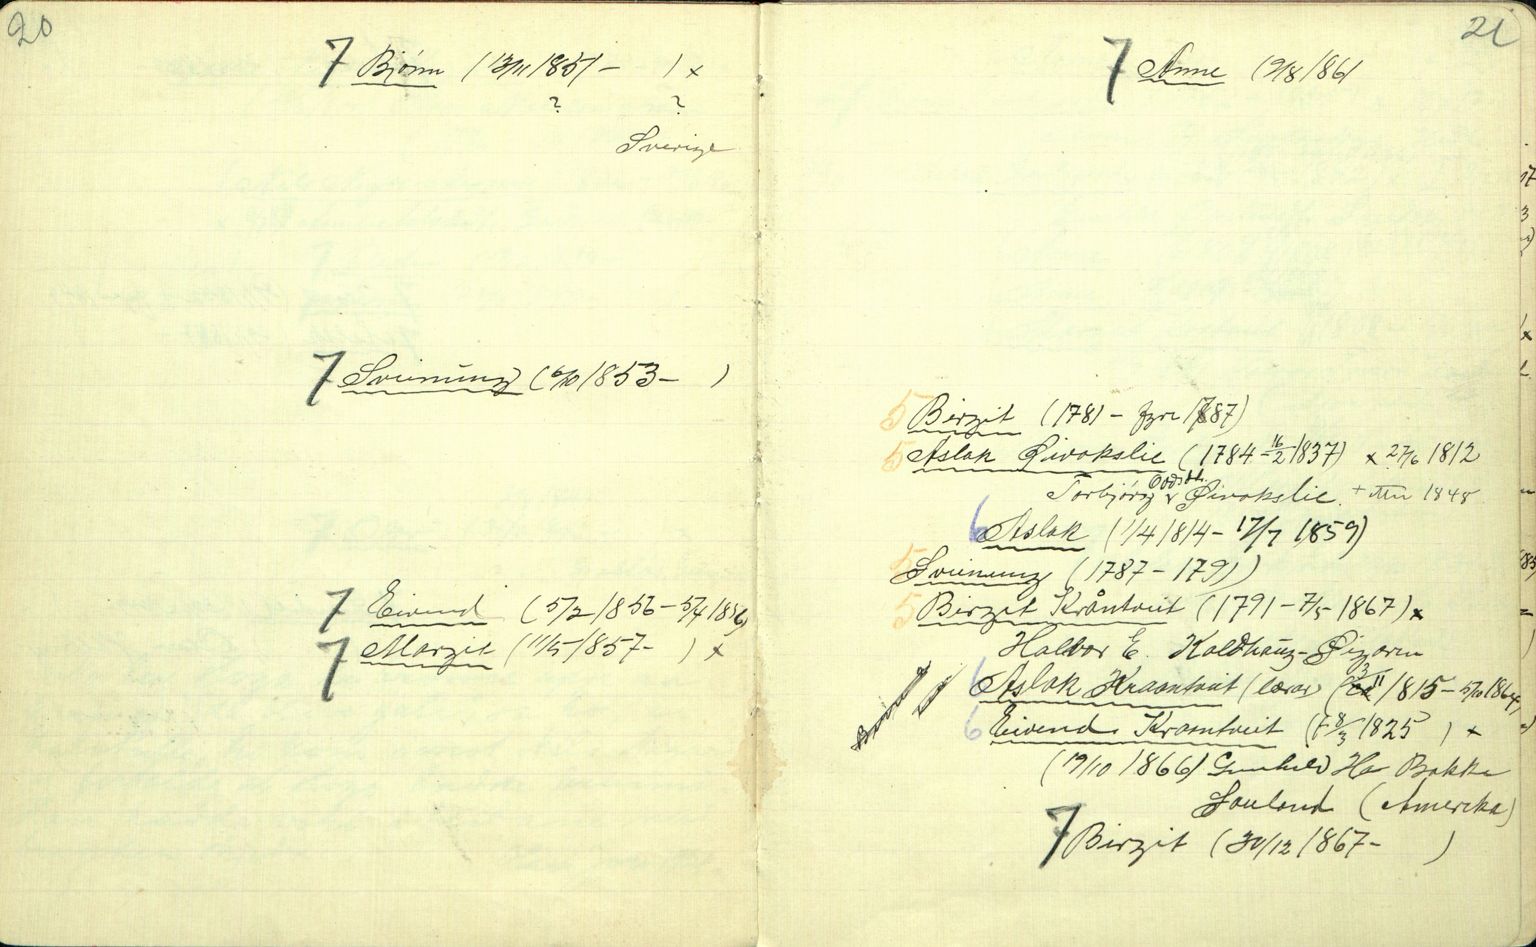 20
7 Bjönn (13/11 1851 - ) x
? ?
Sverige
7 Sveinung (6/10 1853 - )
7 Eivend (5/2 1856 - 5/4 1856)
7 Margit (11/5 1857 - ) x
21
7 Anne (9/8 1861
5 Birgit (1781 - fyrr 1787)
5 Aslak Öivakslie (1784 - 16/2 1837) x 27/6 1812
Torbjörg Oddsdt. Öivakslie + 1848
6 Aslak (1/4 1814 - 17/7 1859)
5 Sveinung (1787 - 1791)
5 Birgit Kråntveit (1791 - 7/5 1867) x
Halvor E. Koldhaug-Öigarden
6 Aslak Kraantveit (lærar) (3/11 1815 - 5/10 1864)
6 Eivend Kraantveit (f 8/3 1825 ) x
(19/10 1866) Gunhild Ha Bakke
Sauland (Amerika)
7 Birgit (30/12 1867 - )